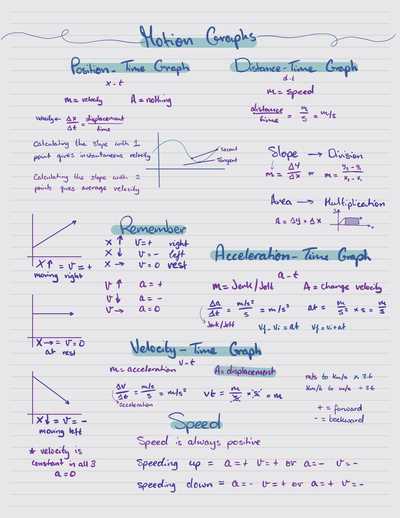 Motion Graphs
Position - Time Graph
x - t
m = velocity A = nothing
velocity = Δx/Δt = displacement/time
Calculating the slope with 1
point gives instantaneous velocity
Calculating the slope with 2
points gives average velocity
Secant
Tangent
Distance - Time Graph
d - t
m = speed
distance/time = m/s = m/s
Slope → Division
m = ΔY/ΔX or m = y₂ - y₁/x₂ - x₁
Area → Multiplication
A = ΔY × ΔX
x ↑ = v = +
moving right
x → = v = 0
at rest
x ↓ = v = -
moving left
* velocity is
constant in all 3
a = 0
Remember
x ↑ v = + right
x ↓ v = - left
x → v = 0 rest
v ↑ a = +
v ↓ a = -
v → a = 0
Acceleration - Time Graph
a - t
m = Jerk/Jolt A = change velocity
Δa/Δt = m/s²/s = m/s³ at = m/s² × s = m/s
Jerk/Jolt
Vf - Vi = at Vf = Vi + at
Velocity - Time Graph
v - t
m = acceleration A = displacement
Δv/Δt = m/s/s = m/s² vt = m/s × s = m
acceleration
m/s to km/h × 3.6
km/h to m/s ÷ 3.6
+ = forward
- = backward
Speed
Speed is always positive
speeding up = a = + v = + or a = - v = -
speeding down = a = - v = + or a = + v = -